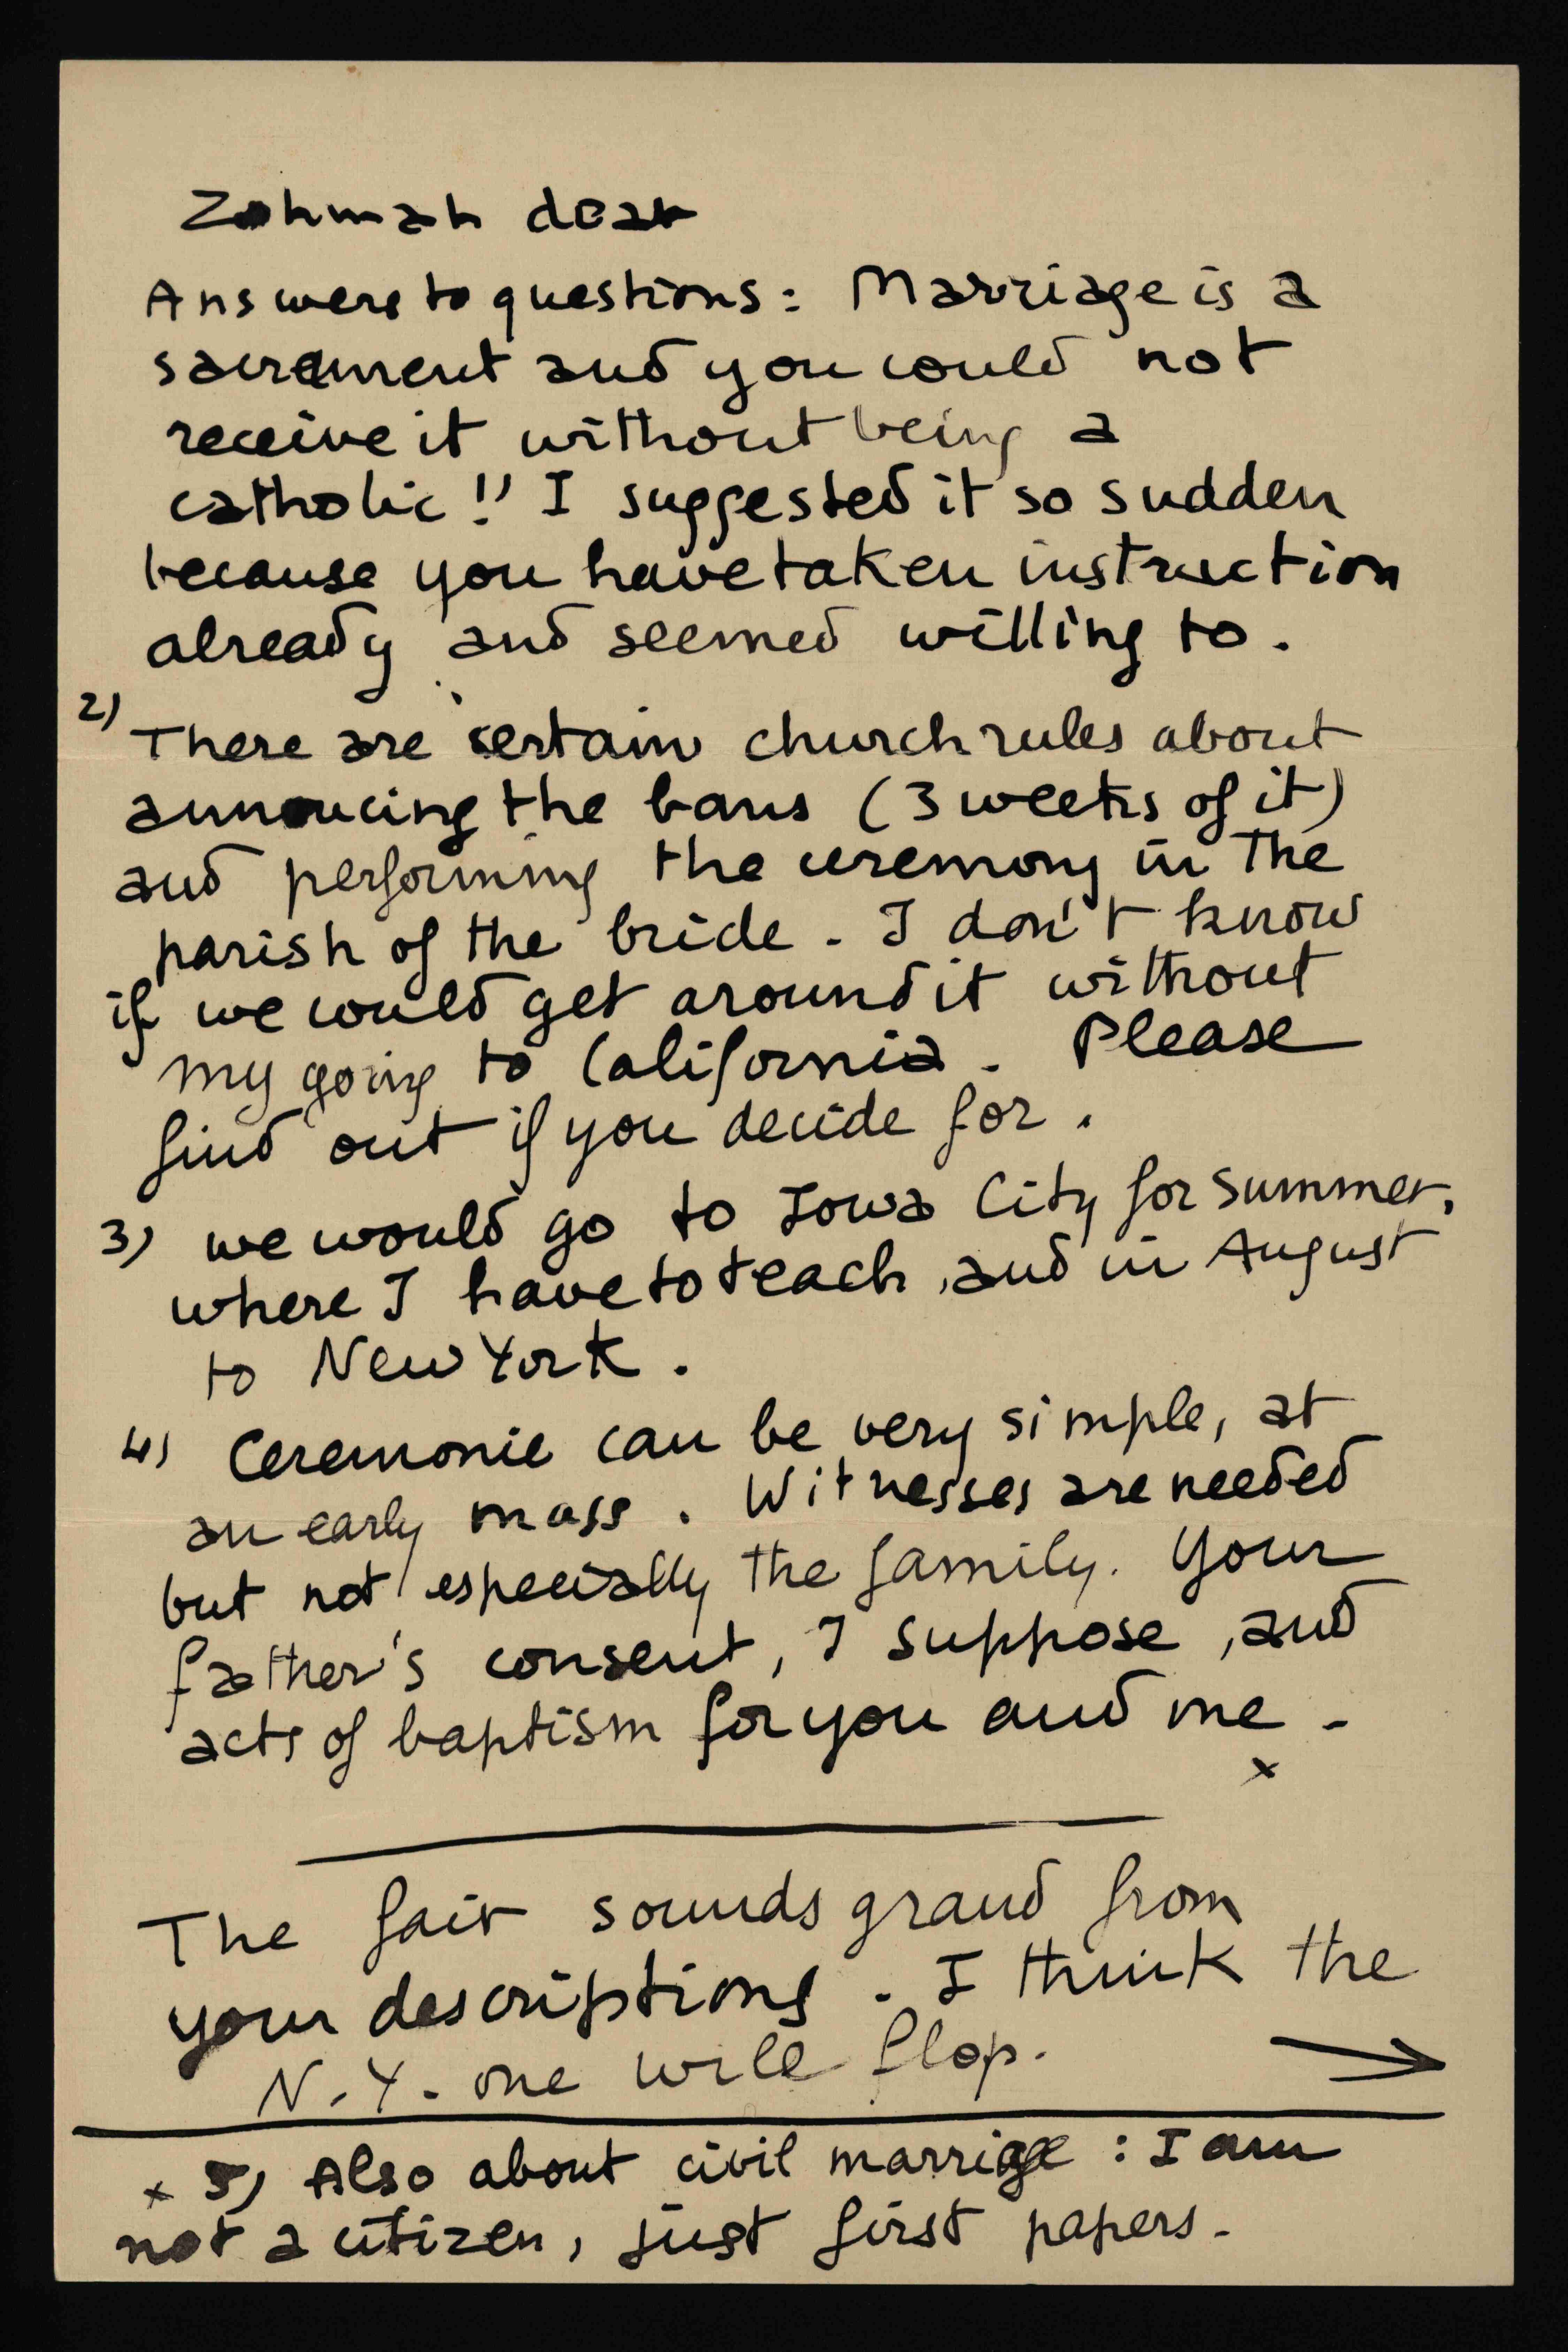 Zohmah dear
Answers to questions: Marriage is a
sacrement and you could not
receive it without being a
catholic!! I suggested it so sudden
because you have taken instruction
already and seemed willing to.
2) There are certain church rules about
announcing the bans (3 weeks of it)
and performing the ceremony in the
parish of the bride. I don't know
if we could get around it without
my going to California. Please
find out if you decide for.
3) we would go to Iowa City for summer,
where I have to teach, and in August
to New York.
4) Ceremonie can be very simple, at
an early mass. Witnesses are needed
but not especially the family. Your
father's consent, I suppose, and
acts of baptism for you and me -
x
The fair sounds grand from
your descriptions. I think the
N.Y. one will flop. →
x 5) Also about civil marriage: I am
not a citizen, just first papers.